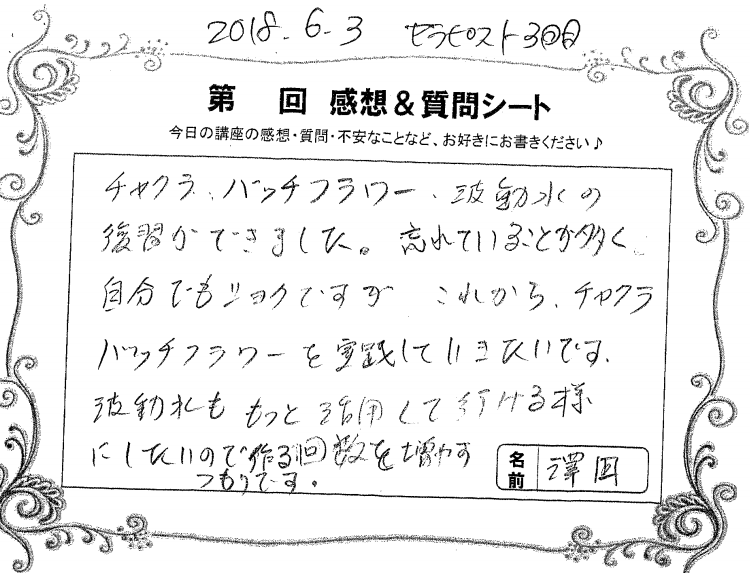 2018.6.3 セラピスト3回目
第 回 感想＆質問シート
今日の講座の感想・質問・不安なことなど、お好きにお書きください♪
チャクラ、バッチフラワー、波動水の
復習ができました。忘れていることが多く、
自分でもショックですが これから、チャクラ
バッチフラワーを実践していきたいです。
波動水も もっと活用して行ける様
にしたいので作る回数を増やす
つもりです。
名前 澤田